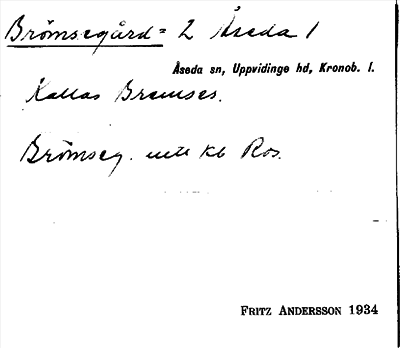 Brömsegård = 2 Åseda 1
Åseda sn, Uppvidinge hd, Kronob. l.
Kallas Bremses.
Brömseg. utt kb Ros.
FRITZ ANDERSSON 1934